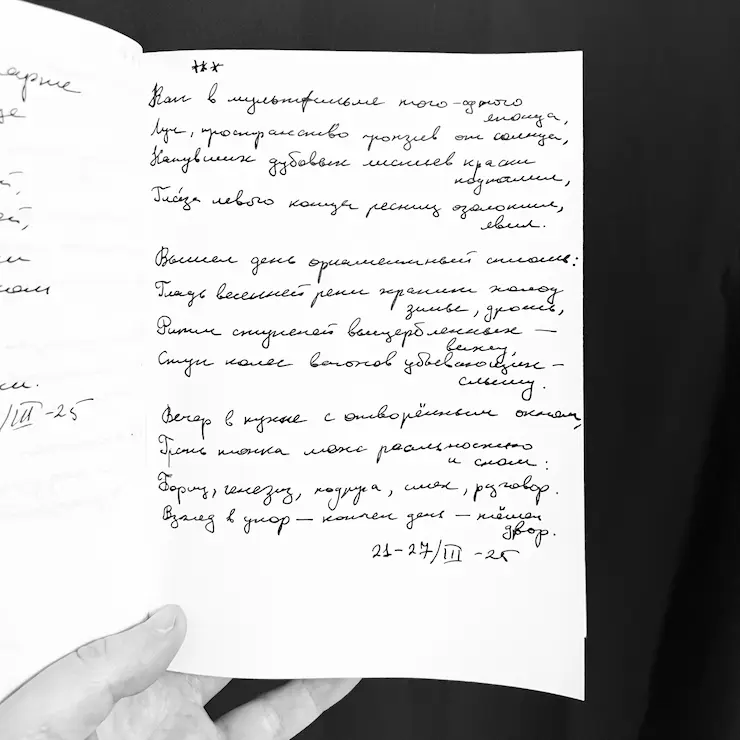 арте
де
й,
ой,
ки
ном
ки.
/III -25
***
Как в мультфильме того-одного
японца,
Луч, пространство пронзив от солнца,
Канувших дубовых листьев краски
подпалил,
Глаза левого конца ресниц озолотил,
явил.
Вышел день орнаментный столь:
Гладь весенней реки хранит холод
зимы, дрожь,
Ритм ступеней выщербленных —
вижу,
Стук колес вагонов убывающих —
слышу.
Вечер в кухне с отворённым окном,
Грань тонка меж реальностью
и сном:
Борщ, генезис, подруга, смех, разговор.
Взгляд в упор — кончен день — тёмен
двор.
21-27/III -25